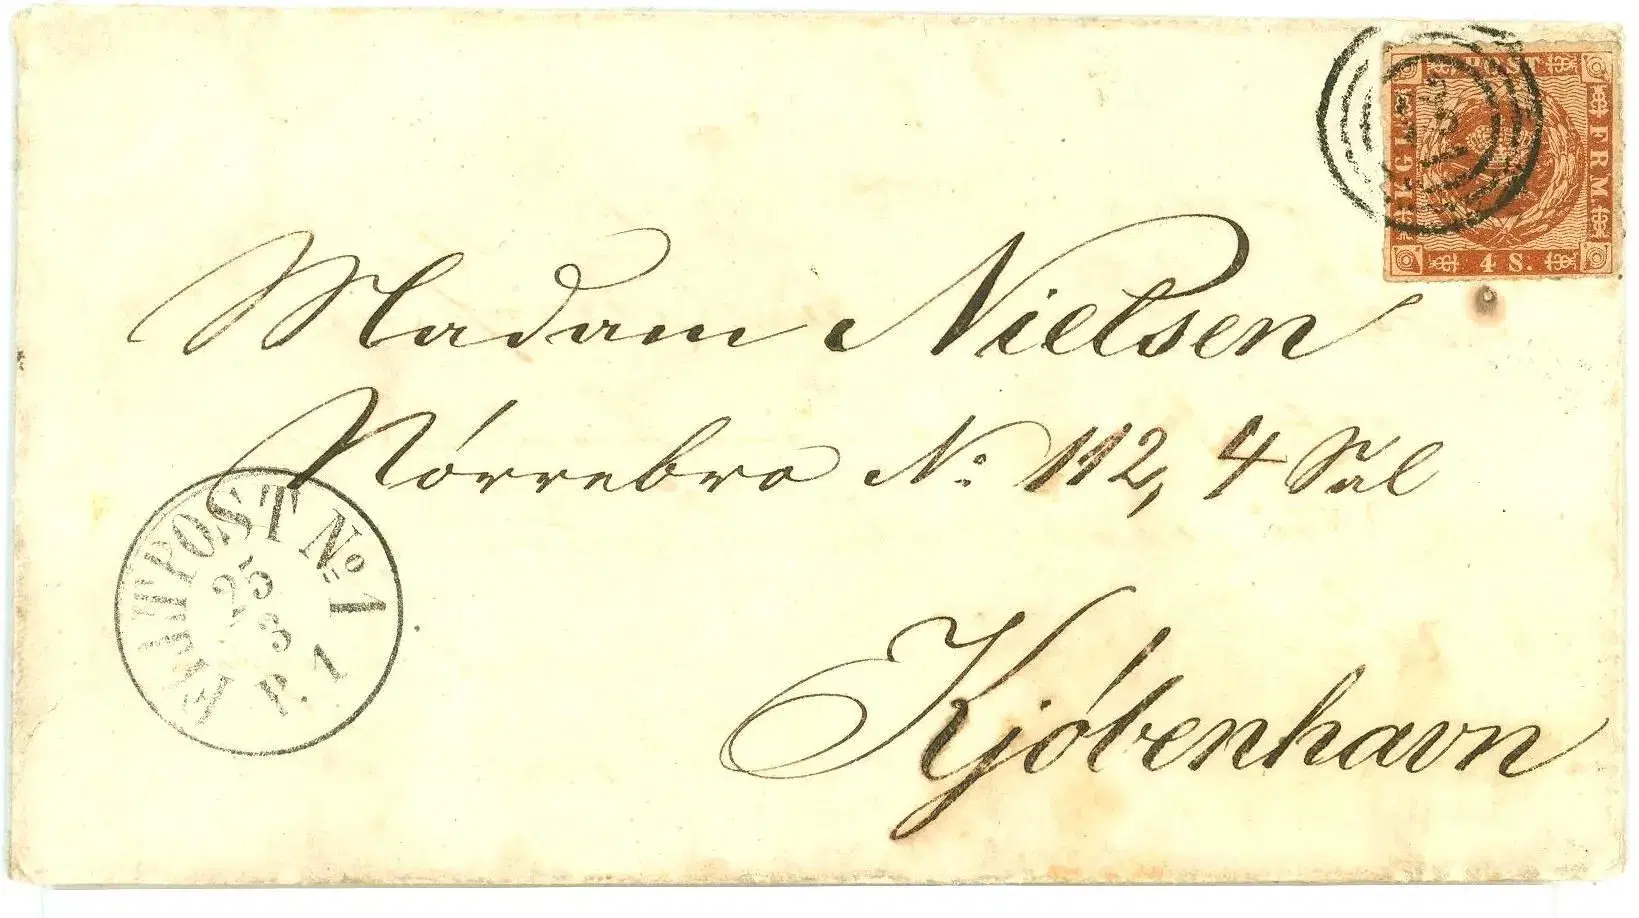 KGL POST FRM
4 S.
Madam Nielsen
Nórrebro No: 112, 4 Sal
Kjóbenhavn
FODPOST No. 1
25
3
P. 1